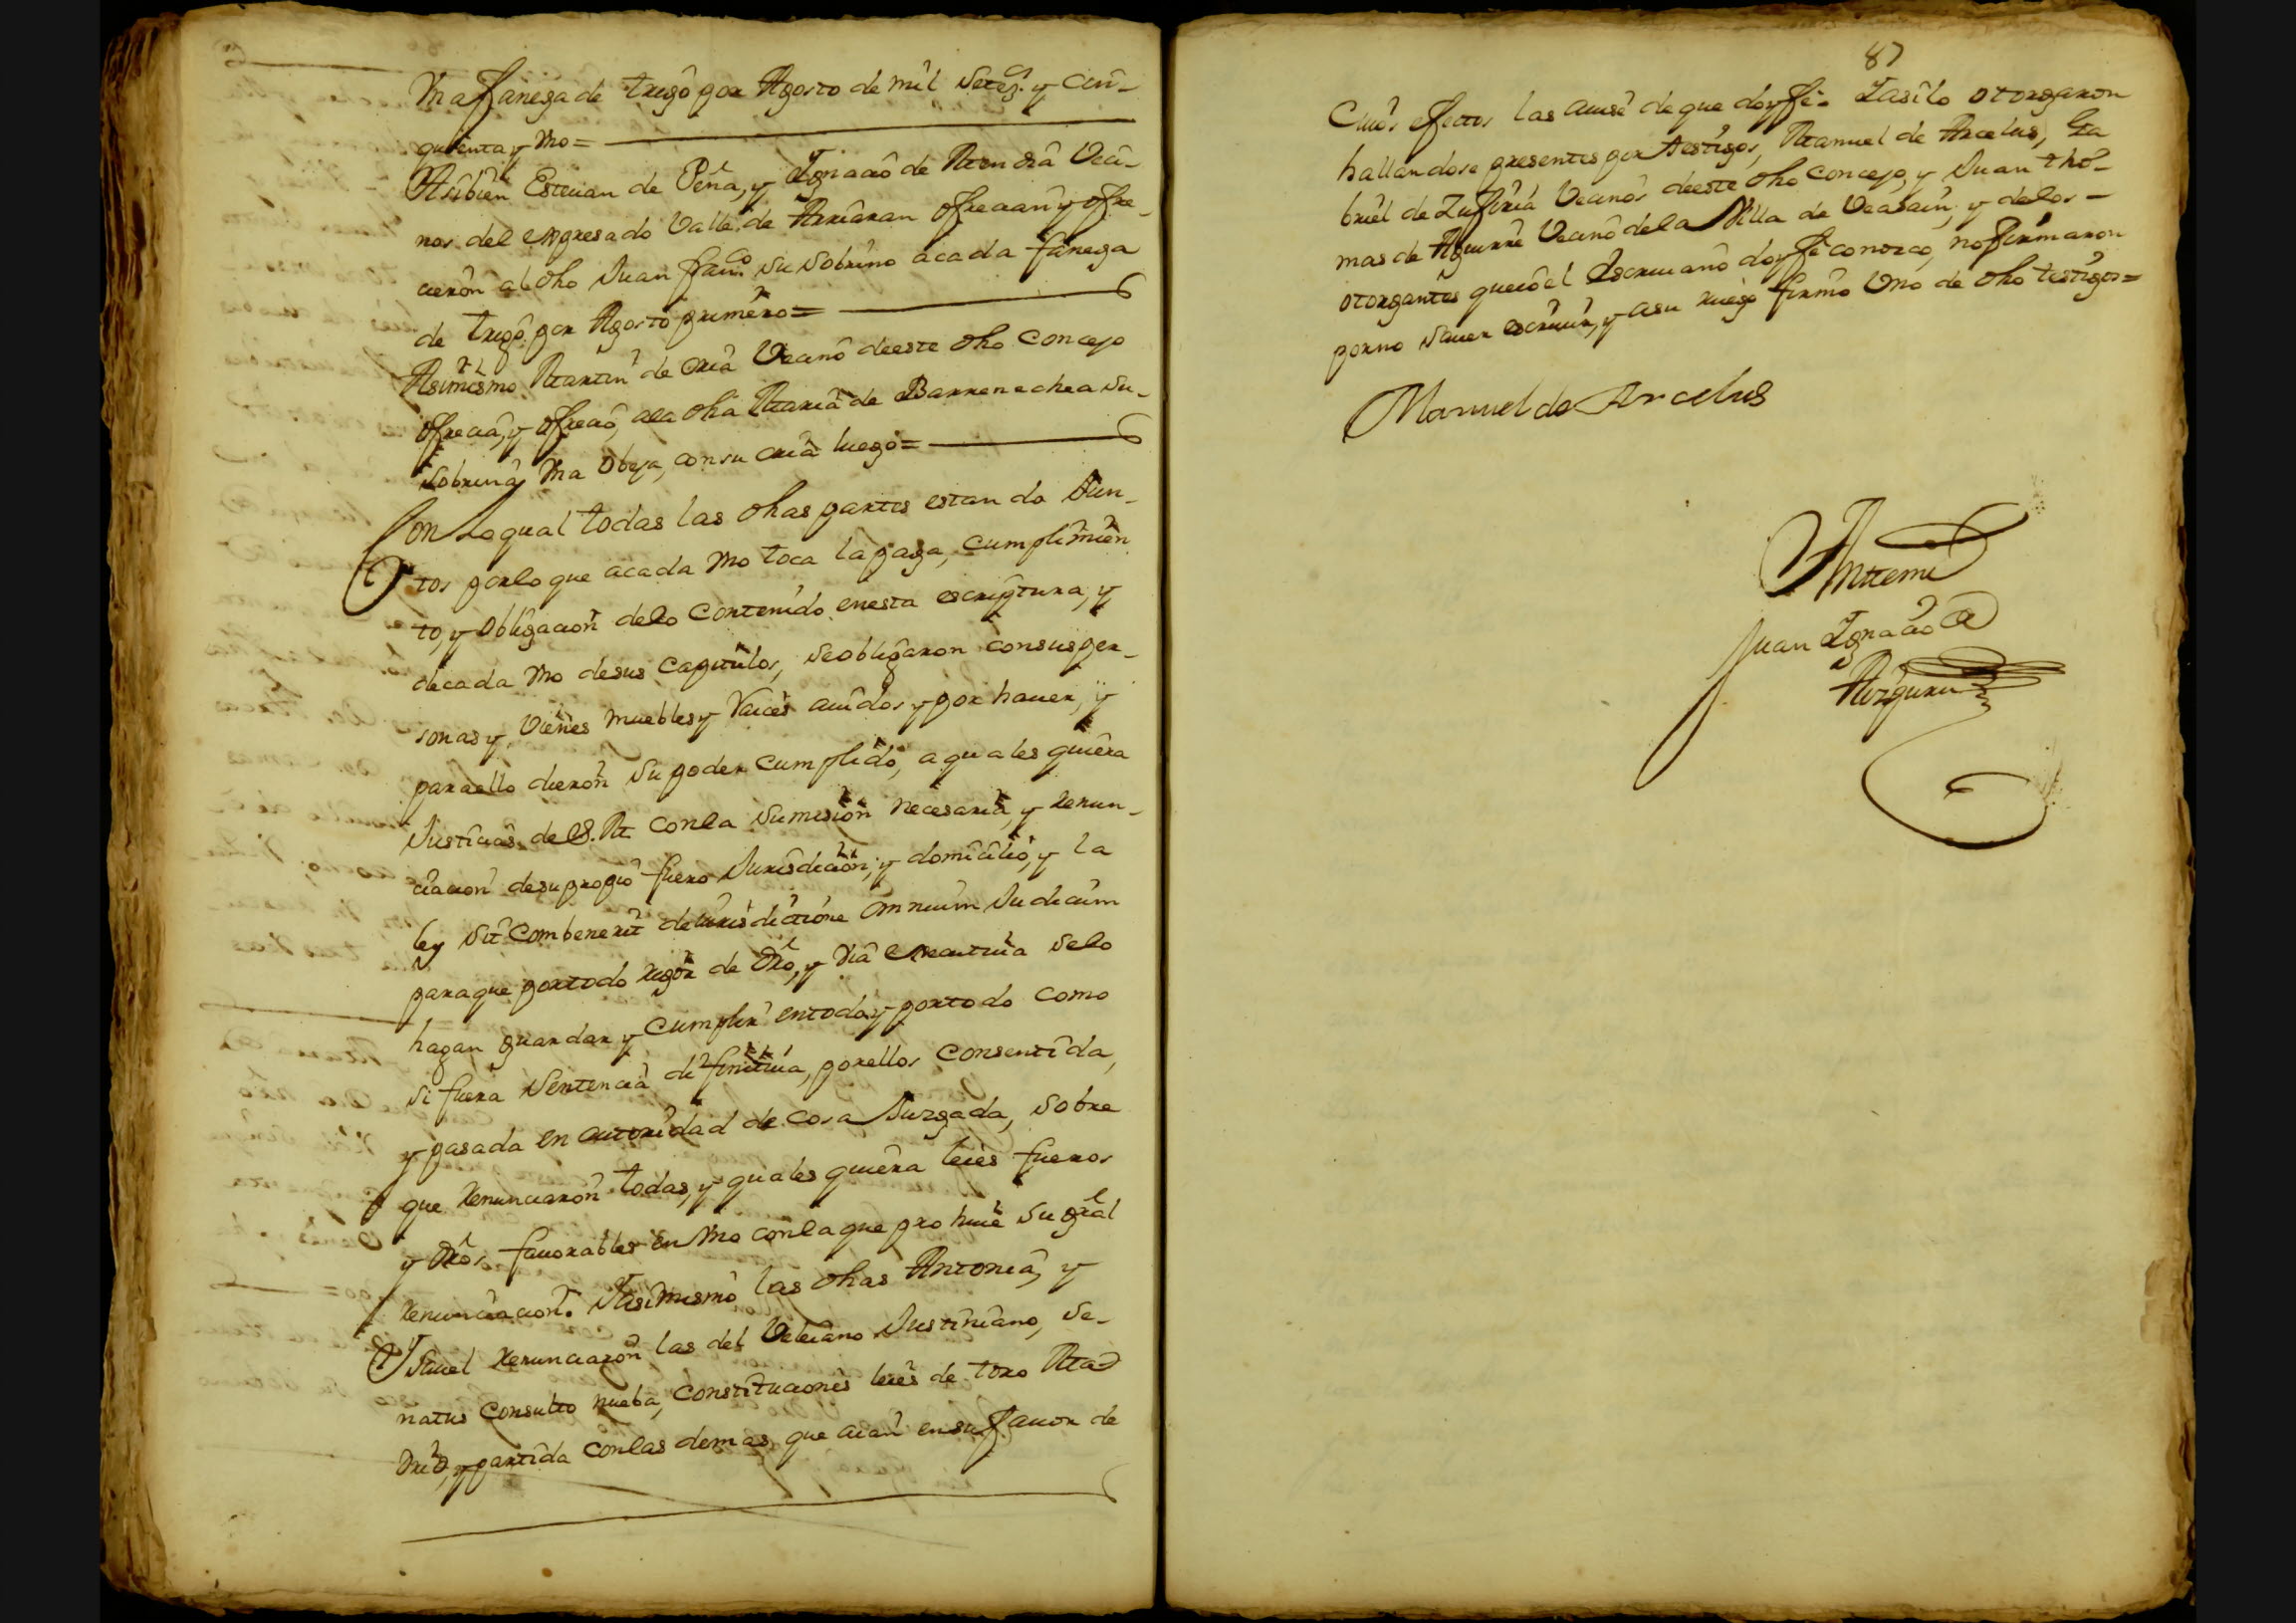 Vna fanega de trigo por Agosto de mil Setecs. y cin-
quenta y Vno =
Asibien Esteuan de Peña, y Ignacio de Mendia Veci-
nos del expresado Valle de Arriaran ofrecian y ofre-
cieron al dho Juan franco. su sobrino acada fanega
de trigo por Agosto primero =
Asimismo Martin de oria Vecino deeste dho concejo
ofrecia, y ofrecio, ala dha Maria de Barrenechea su
sobrina Vna obeja, con su cria luego =
Con Loqual todas las dhas partes estando Jun-
tos porlo que acada Vno toca lapaga, cumplimien
to, y obligacion delo contenido enesta escriptura, y
decada Vno desus capitulos, seobligaron consusper-
sonas y Vienes muebles y Raices auidos y por hauer, y
paraello dieron su poder cumplido, a quales quiera
Justicias de S. M. conla sumision necesaria, y renun-
ciacion desu propio fuero Jurisdicion, y domicilio, y la
ley sit combenerit dejurisdictione omnium Judicum
paraque portodo rigor de dro, y via executiua selo
hagan guardar y cumplir entodo y portodo como
si fuera sentencia difinitiua, porellos consentida,
y pasada en autoridad de cosa Juzgada, sobre
que renunciaron todas, y quales quiera leies fueros
y dros fauorables en Vno conla que prohiue su gral
renunciacion. Yasimismo las dhas Antonia, y
Ysauel renunciaron las del Veleiano Justiniano, se-
natus consulto nueba, constituciones leies de toro Mad
drid, y partida conlas demas, que aian ensu fauor de
87
Cuios efectos las auise de que doyfe. Yasilo otorgaron
hallandose presentes por testigos, Manuel de Arcelus, Ga
briel de Zufiria Vecinos deeste dho concejo, y Juan tho-
mas de Aguirre Vecino dela Villa de Veasain, y delos
otorgantes queio el Escriuano doyfe conozco, nofirmaron
porno sauer escriuir, y asu ruego firmo Vno de dho testigos =
Manuel de Arcelus
Antemi
Juan Ignacio de